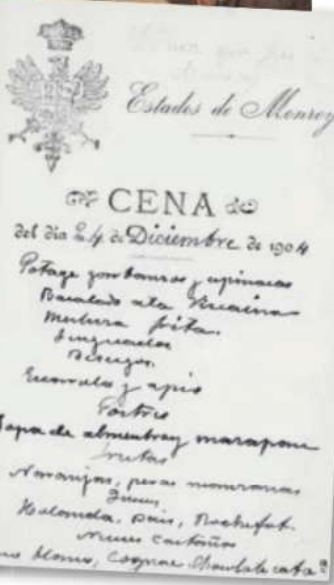 Estados de Monroy
CENA
del día 24 de Diciembre de 1904
Potage garbanzos y espinacas
Bacalado a la Vizcaina
Merluza frita.
Lenguados
Besugos.
Escarola y apio
Postres
Sopa de almendra y marapane
Frutas
Naranjas, peras manzanas
Quesos
Holanda, pais, Rochefort.
Nueces Castañas
Cognac Chocolate cafe